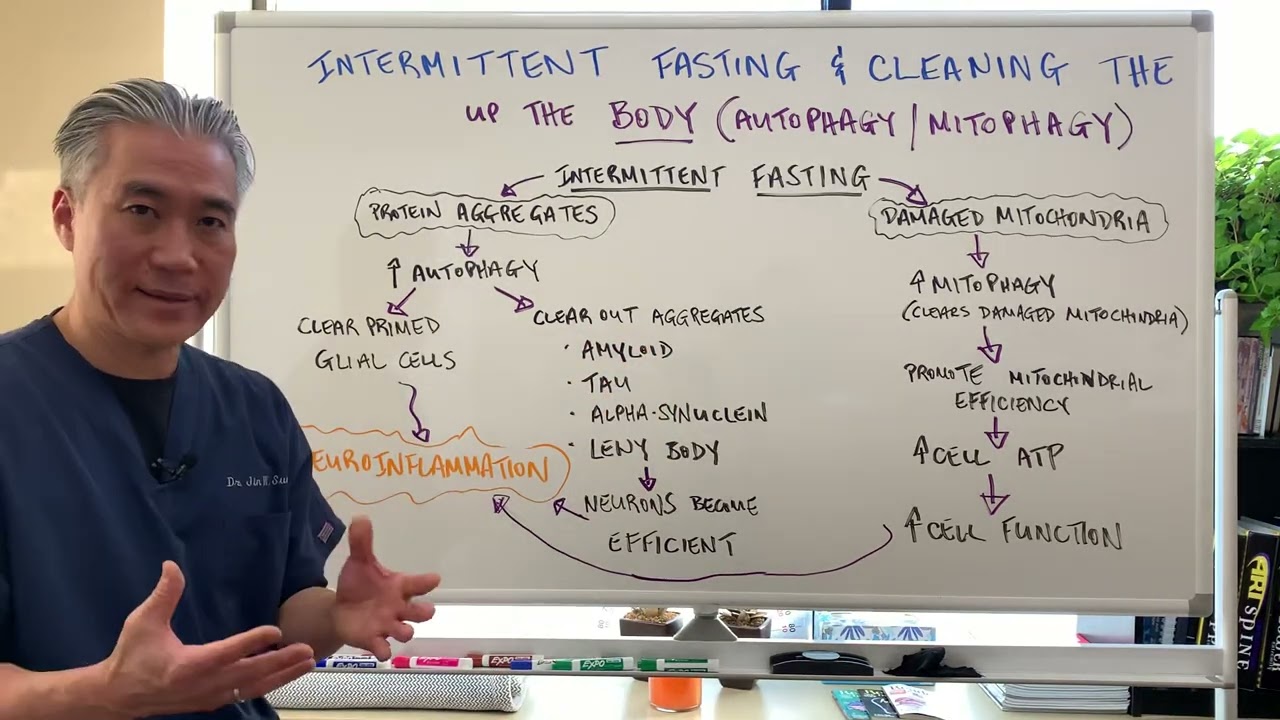 INTERMITTENT FASTING & CLEANING THE
UP THE BODY (AUTOPHAGY/MITOPHAGY)
INTERMITTENT FASTING
PROTEIN AGGREGATES
↑ AUTOPHAGY
CLEAR PRIMED
GLIAL CELLS
EUROINFLAMMATION
CLEAR OUT AGGREGATES
· AMYLOID
· TAU
· ALPHA-SYNUCLEIN
· LEWY BODY
NEURONS BECOME
EFFICIENT
DAMAGED MITOCHONDRIA
↑ MITOPHAGY
(CLEARS DAMAGED MITOCHINDRIA)
PROMOTE MITOCHONDRIAL
EFFICIENCY
↑ CELL ATP
↑ CELL FUNCTION
Dr. Jin W. Su
EXPO
EXPO
EXPO
SPINE